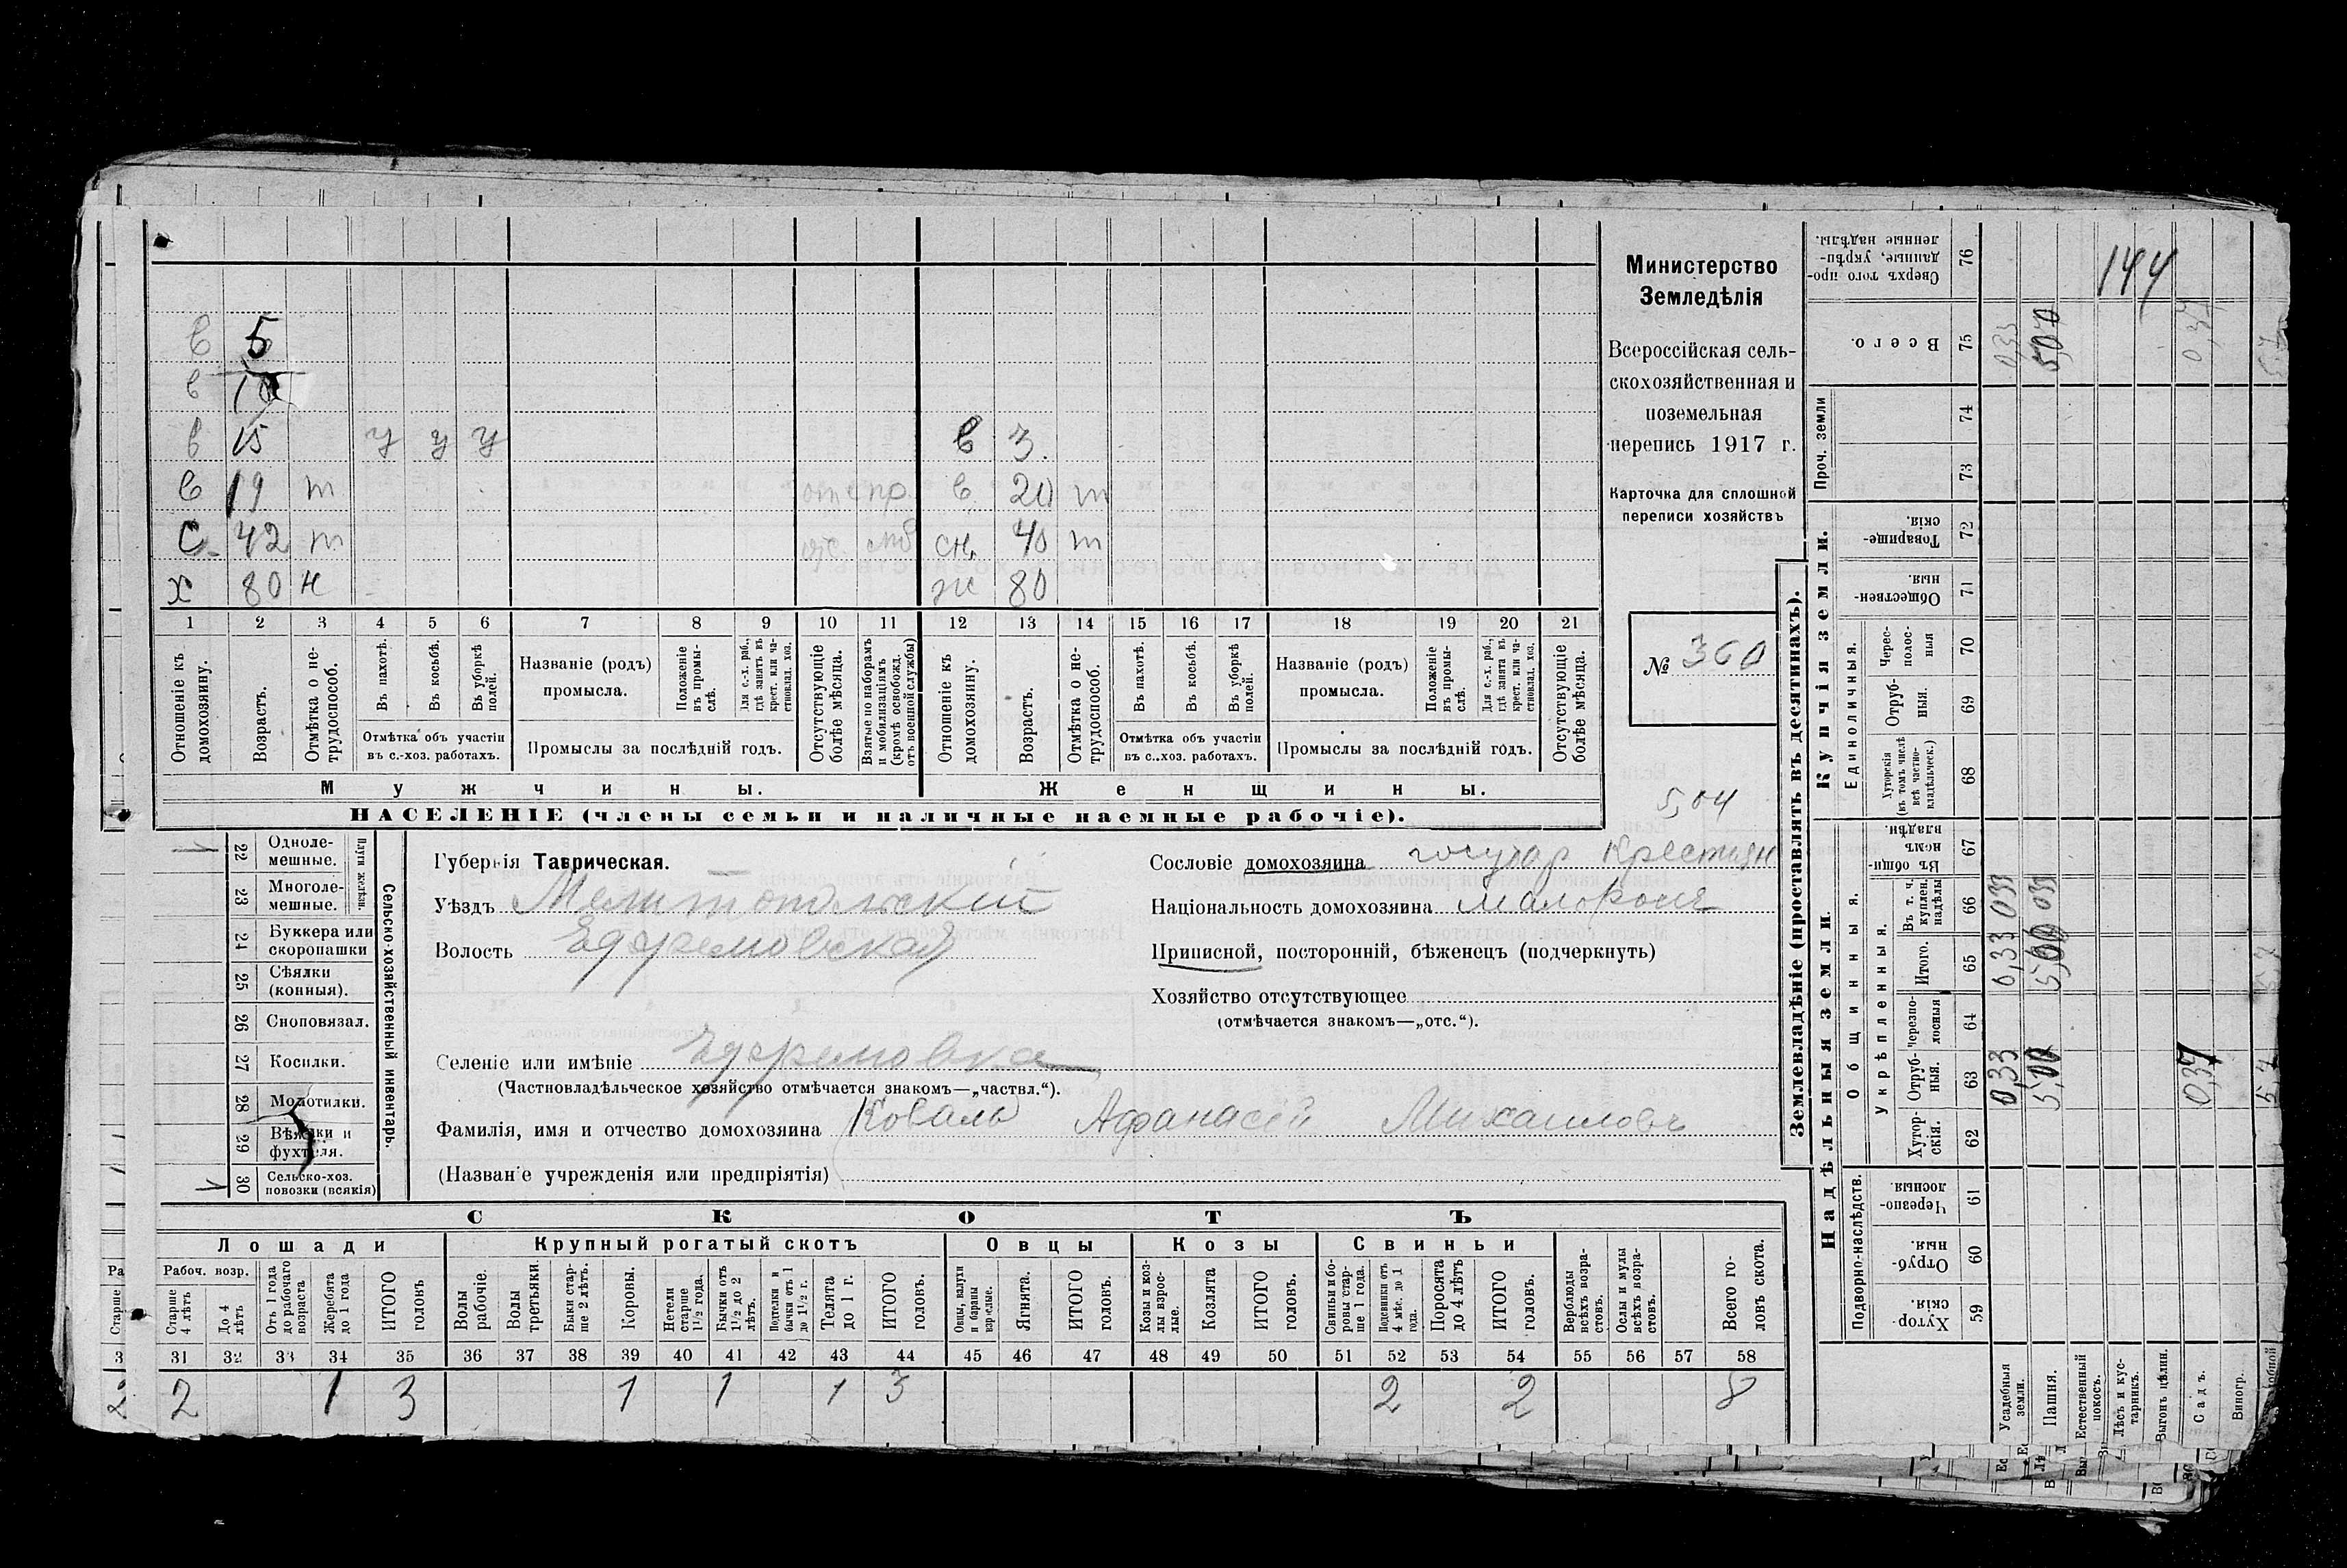 в 5
в 10
в 15 у у у в 3.
в 19 т в. 20 т
с. 42 т сн. 40 т
х 80 н ж 80
1 2 3 4 5 6 7 8 9 10 11 12 13 14 15 16 17 18 19 20 21
Отношеніе къ домохозяину.
Возрастъ.
Отмѣтка о не-
трудоспособ.
Въ пахотѣ.
Въ косьбѣ.
Въ уборкѣ
полей.
Отмѣтка объ участіи
въ с.-хоз. работахъ.
Названіе (родъ)
промысла.
Положеніе
въ промы-
слѣ.
Для с.-х. раб.,
гдѣ занятъ въ
крест. или ча-
стновлад. хоз.
Промыслы за послѣдній годъ.
Отсутствующіе
болѣе мѣсяца.
Взятые по наборамъ
и мобилизаціямъ
(кромѣ освобожд.
отъ военной службы)
Отношеніе къ
домохозяину.
Возрастъ.
Отмѣтка о не-
трудоспособ.
Въ пахотѣ.
Въ косьбѣ.
Въ уборкѣ
полей.
Отмѣтка объ участіи
въ с.-хоз. работахъ.
Названіе (родъ)
промысла.
Положеніе
въ промы-
слѣ.
Для с.-х. раб.,
гдѣ занята въ
крест. или ча-
стновлад. хоз.
Промыслы за послѣдній годъ.
Отсутствующіе
болѣе мѣсяца.
Мужчины. Женщины.
НАСЕЛЕНІЕ (члены семьи и наличные наемные рабочіе).
Министерство
Земледѣлія
Всероссійская сель-
скохозяйственная и
поземельная
перепись 1917 г.
Карточка для сплошной
переписи хозяйствъ
№ 360
5,04
Сельско-хозяйственный инвентарь.
Плуги желѣзн.
22 Одноле-
мешные.
23 Многоле-
мешные.
24 Буккера или
скоропашки
25 Сѣялки
(конныя).
26 Сноповязал.
27 Косилки.
28 Молотилки.
29 Вѣялки и
фухтеля.
30 Сельско-хоз.
повозки (всякія)
Губернія Таврическая.
Уѣздъ Мелитопольскій
Волость Ефремовская
Селеніе или имѣніе Ефремовка
(Частновладѣльческое хозяйство отмѣчается знакомъ—„частвл.“).
Фамилія, имя и отчество домохозяина Коваль Афанасій Михаиловъ
(Названіе учрежденія или предпріятія)
Сословіе домохозяина государ крестьян
Національность домохозяина
Приписной, посторонній, бѣженецъ (подчеркнуть)
Хозяйство отсутствующее
(отмѣчается знакомъ—„отс.“).
СКОТЪ
Лошади Крупный рогатый скотъ Овцы Козы Свиньи
Рабоч. возр.
Старше
4 лѣтъ
До 4
лѣтъ
Отъ 1 года
до рабочаго
возраста
Жеребята
до 1 года
ИТОГО
головъ
Волы
рабочіе.
Волы
третьяки.
Быки стар-
ше 2 лѣтъ.
Коровы.
Нетели
старше
1½ года.
Бычки отъ
1½ до 2
лѣтъ.
Подтелки и
бычки отъ 1
до 1½ г.
Телята
до 1 г.
ИТОГО
головъ.
Овцы, валухи
и бараны
взрослые.
Ягнята.
ИТОГО
головъ.
Козы и коз-
лы взрос-
лые.
Козлята
ИТОГО
головъ.
Свиньи и бо-
ровы стар-
ше 1 года.
Подсвинки отъ
4 мѣс. до 1
года.
Поросята
до 4 лѣтъ
ИТОГО
головъ.
Верблюды
всѣхъ возра-
стовъ.
Ослы и мулы
всѣхъ возра-
стовъ.
Всего го-
ловъ скота.
31 32 33 34 35 36 37 38 39 40 41 42 43 44 45 46 47 48 49 50 51 52 53 54 55 56 57 58
2 1 3 1 1 1 3 2 2 8
Землевладѣніе (проставлять въ десятинахъ).
Надѣльныя земли. Купчія земли. Проч. земли
Подворно-наслѣдств. Общинныя. Единоличныя.
Укрѣпленныя.
Хутор-
скія. 59
Отруб-
ныя. 60
Черезпо-
лосныя. 61
Хутор-
скія. 62
Отруб-
ныя. 63
Черезпо-
лосныя 64
Итого. 65
Въ т. ч.
куплен.
надѣлы 66
Въ общин-
номъ
владѣн. 67
Хуторскія
(въ томъ числѣ
всѣ частно-
владѣльческ.) 68
Отруб-
ныя. 69
Черес-
полос-
ныя 70
Обществен-
ныя. 71
Товарище-
скія. 72
73
74
Всего. 75
Сверхъ того про-
данные, укрѣп-
ленные надѣлы. 76
Усадебныя
земли. 0,33 0,33 033 033
Пашня. 5,00 5,00 033 5,00
Естественный
покосъ.
Лѣсъ и кус-
тарникъ.
Выгонъ цѣлин.
Садъ. 0,37 0,37
Виногр.
144